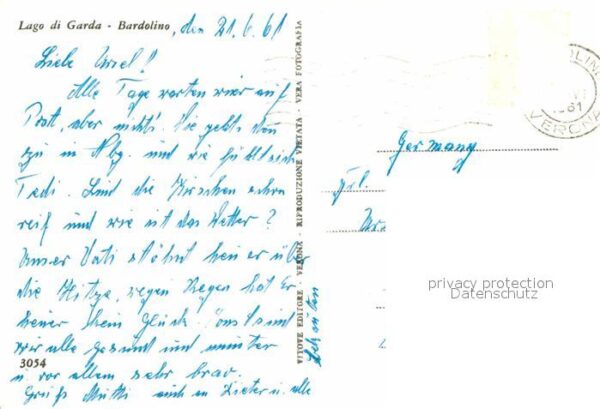 Lago di Garda - Bardolino, den 21.6.61
Liebe Ursel!
Alle Tage warten wir auf
Post, aber nichts! Wie gehts denn
zu in Nbg. und wie fühlt sich
Tedi. Sind die Kirschen schon
reif und wie ist das Wetter?
Unser Vati stöhnt er über
die Hitze, wegen Regen hat Er
kein Glück. Sonst sind
wir alle gesund und munter
u. vor allem sehr brav.
Gruß Mutti auch an Dieter u. alle
3054
VITOVE EDITORE - VERONA - RIPRODUZIONE VIETATA VERA FOTOGRAFIA
VERONA
61
Germany
Frl.
privacy protection
Datenschutz